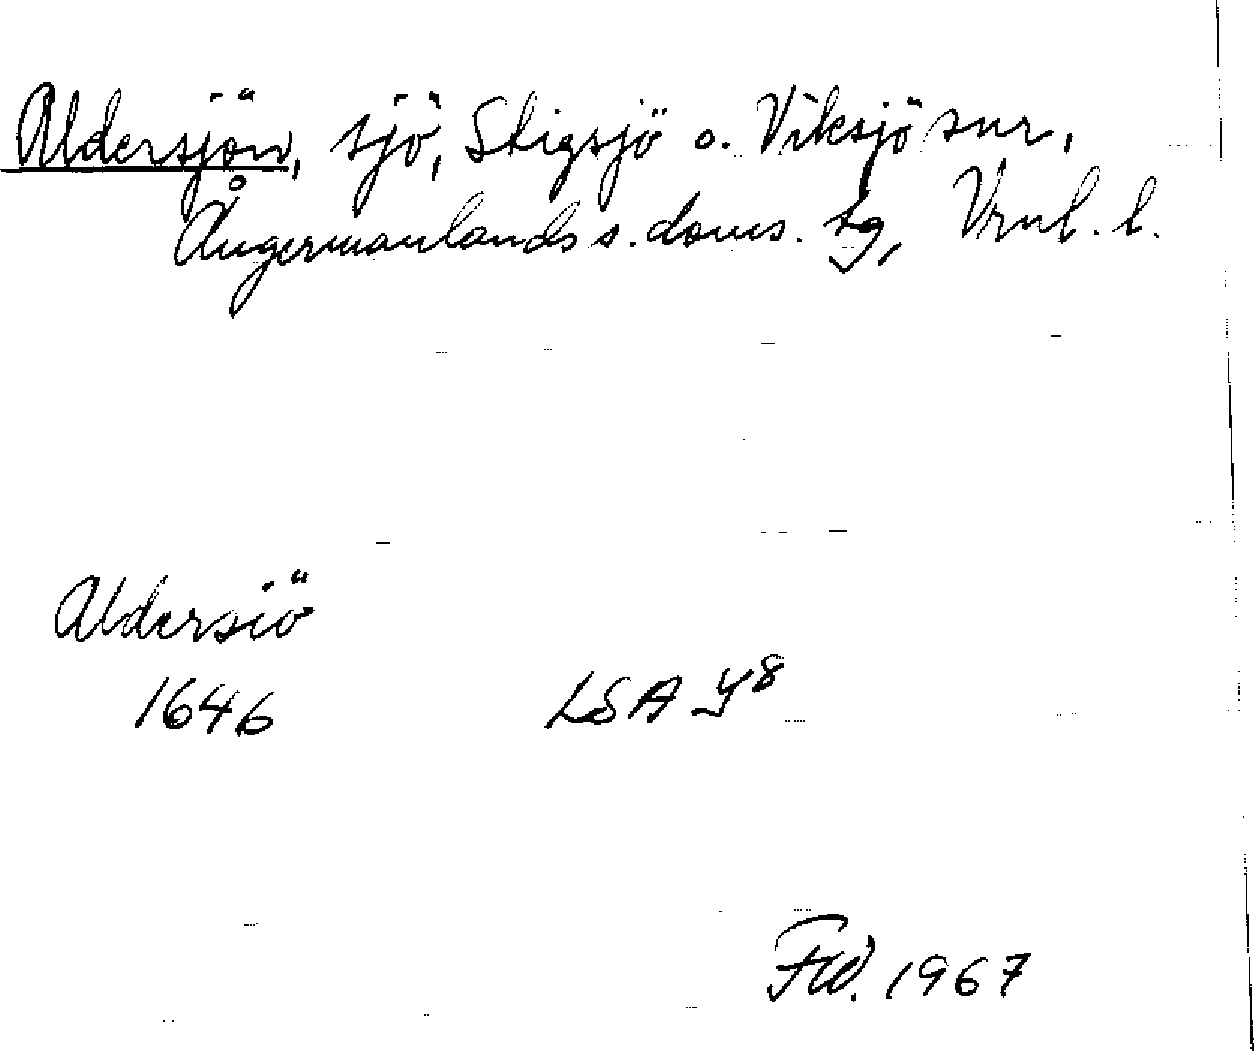 Aldersjön, sjö, Stigsjö o. Viksjö snr,
Ångermanlands s. doms. tg, Vrnl. l.
Aldersiö
1646 LSA Y8
FW. 1967